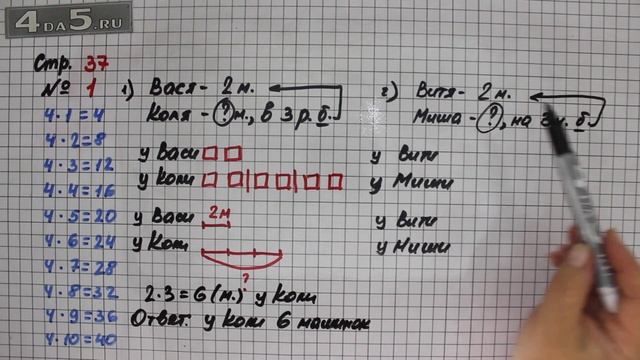 4DA5.RU
Стр. 37
№ 1
4·1=4
4·2=8
4·3=12
4·4=16
4·5=20
4·6=24
4·7=28
4·8=32
4·9=36
4·10=40
1) Вася - 2 м.
Коля - ? м., в 3 р. б.
у Васи
у Коли
у Васи 2м
у Коли
?
2·3=6(м.) у Коли
Ответ: у Коли 6 машинок
2) Витя - 2 м.
Миша - ?, на 3 м. б.
у Вити
у Миши
у Вити
у Миши